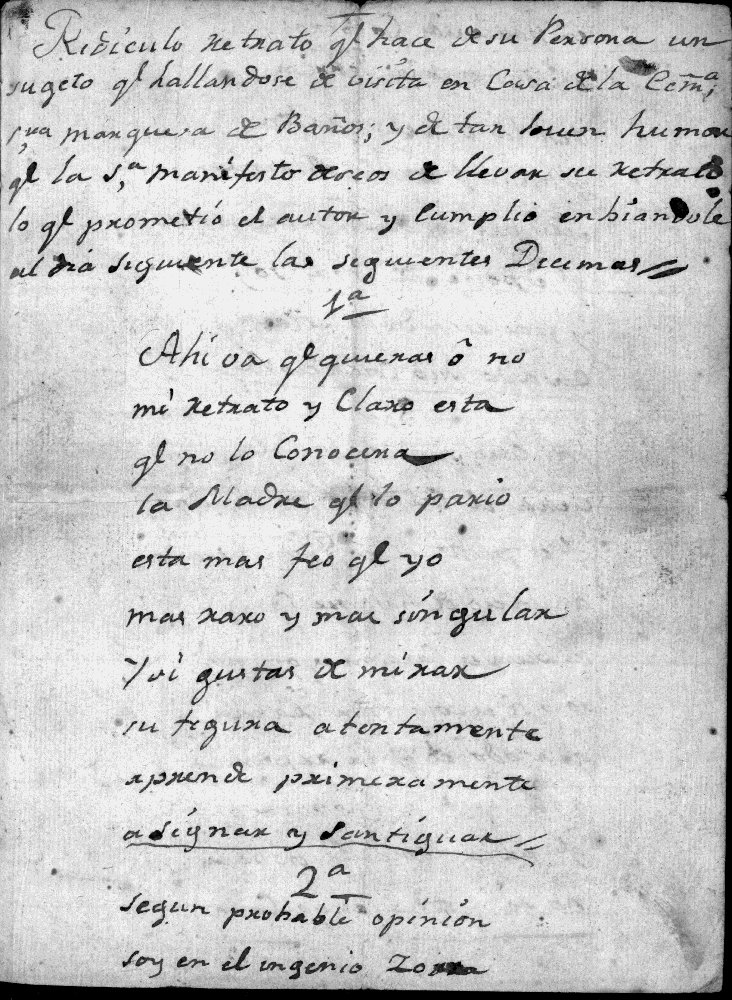 Ridiculo retrato ql hace de su Persona un
sugeto ql hallandose de visita en Casa de la
s,ra marquesa de Baños; y de tan buen humor
ql la s,a manifesto deseos de llevar su retrato
lo ql prometio el autor y Cumplio enbiandole
al dia siguiente las seguientes Decimas
1a
Ahi va ql quieras ô no
mi retrato y Claro esta
ql no lo Conocera
la Madre ql lo pario
esta mas feo ql yo
mas raro y mas singular
Y si gustas de mirar
su figura atentamente
aprende primeramente
a signar y santiguar
2a
segun probable opinion
soy en el ingenio